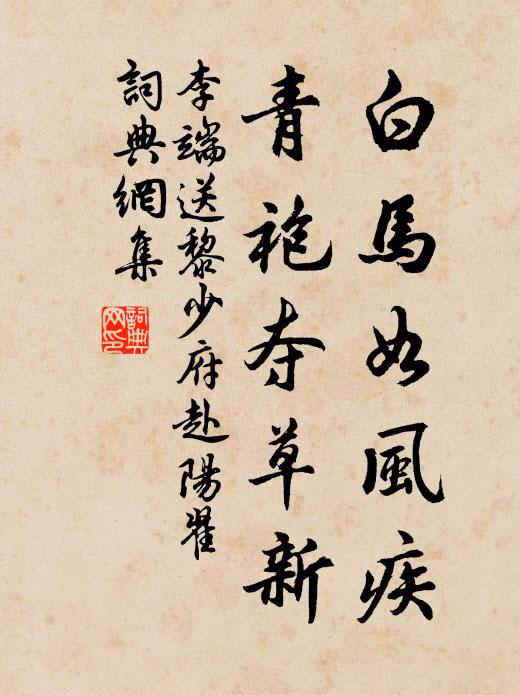 白馬如風疾
青袍夺草新
李端送黎少府赴陽翟
詞典網集
詞典
网印